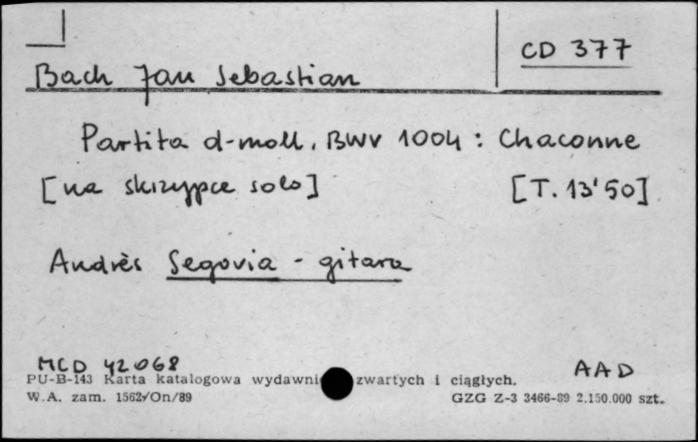 CD 377
Bach Jan Sebastian
Partita d-moll, BWV 1004 : Chaconne
[na skrzypce solo] [T. 13'50]
Andrès Segovia - gitara
MCD 42068 AAD
PU-B-143 Karta katalogowa zwartych i ciągłych.
W.A. zam. 1562/On/89 GZG Z-3 3466-89 2.150.000 szt.